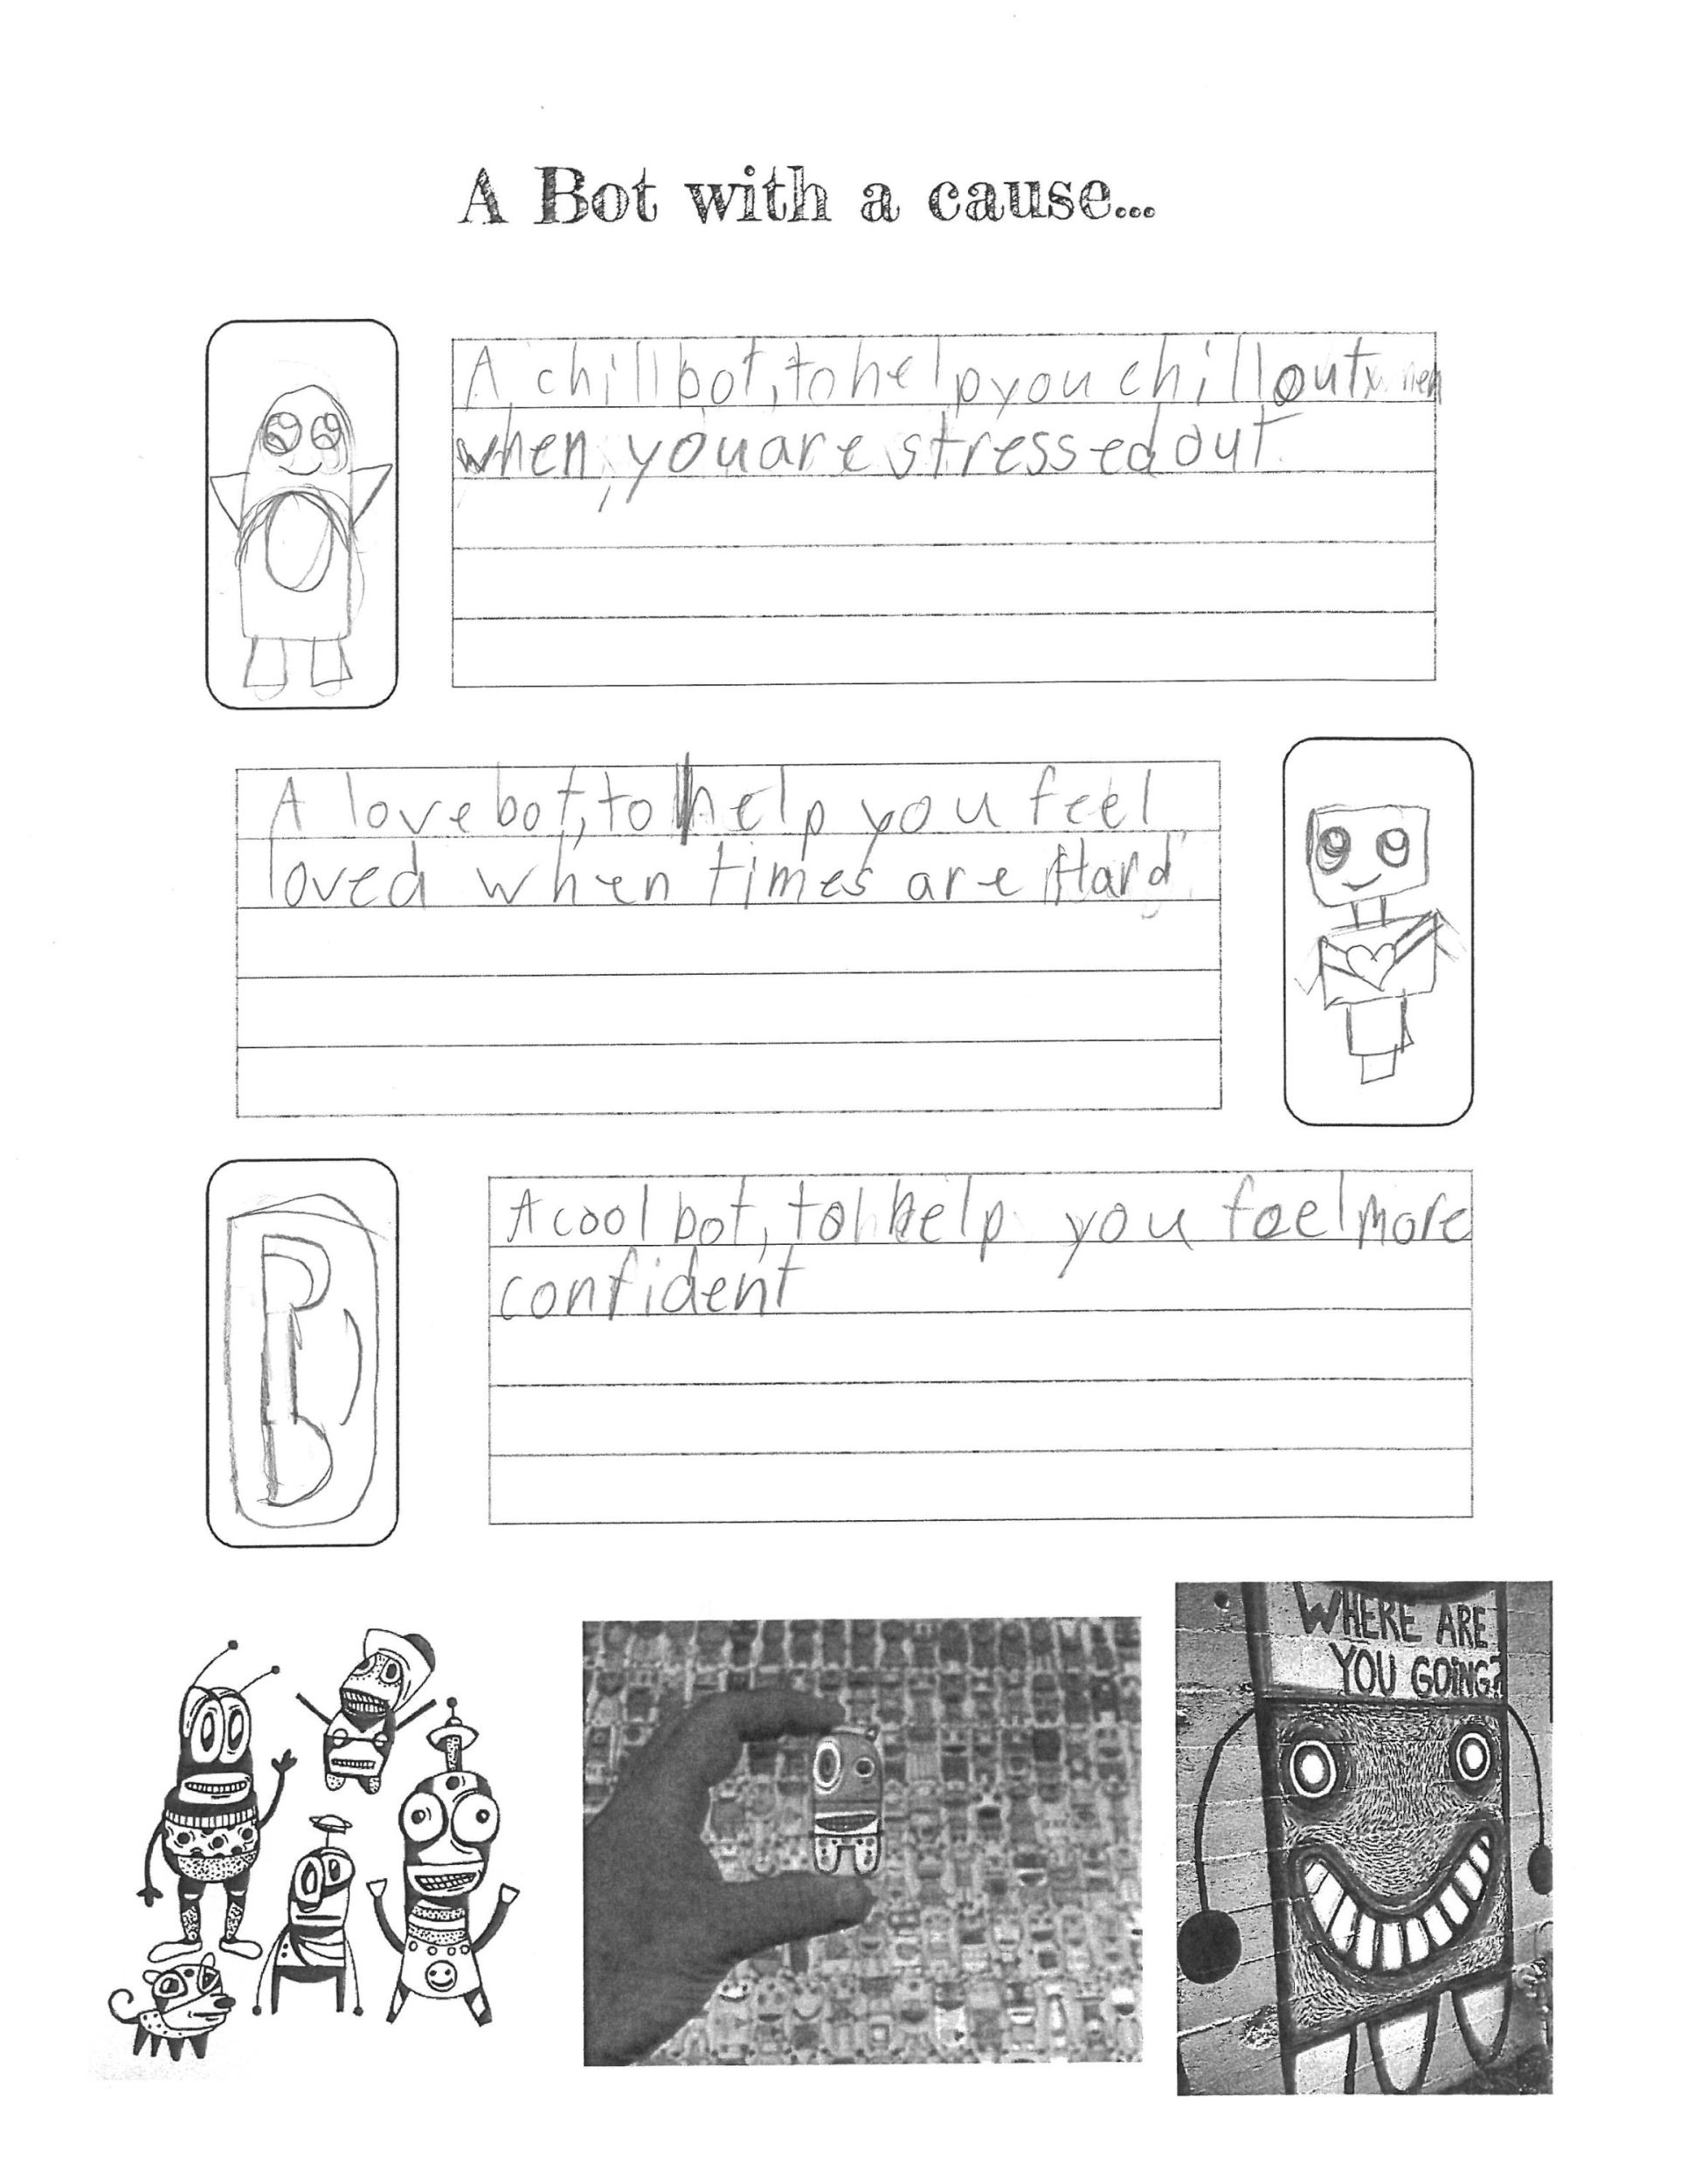 A Bot with a cause...
A chill bot, to help you chill out
when, you are stressed out
A love bot, to help you feel
loved when times are Hard
A cool bot, to help you feel more
confident
WHERE ARE
YOU GOING?